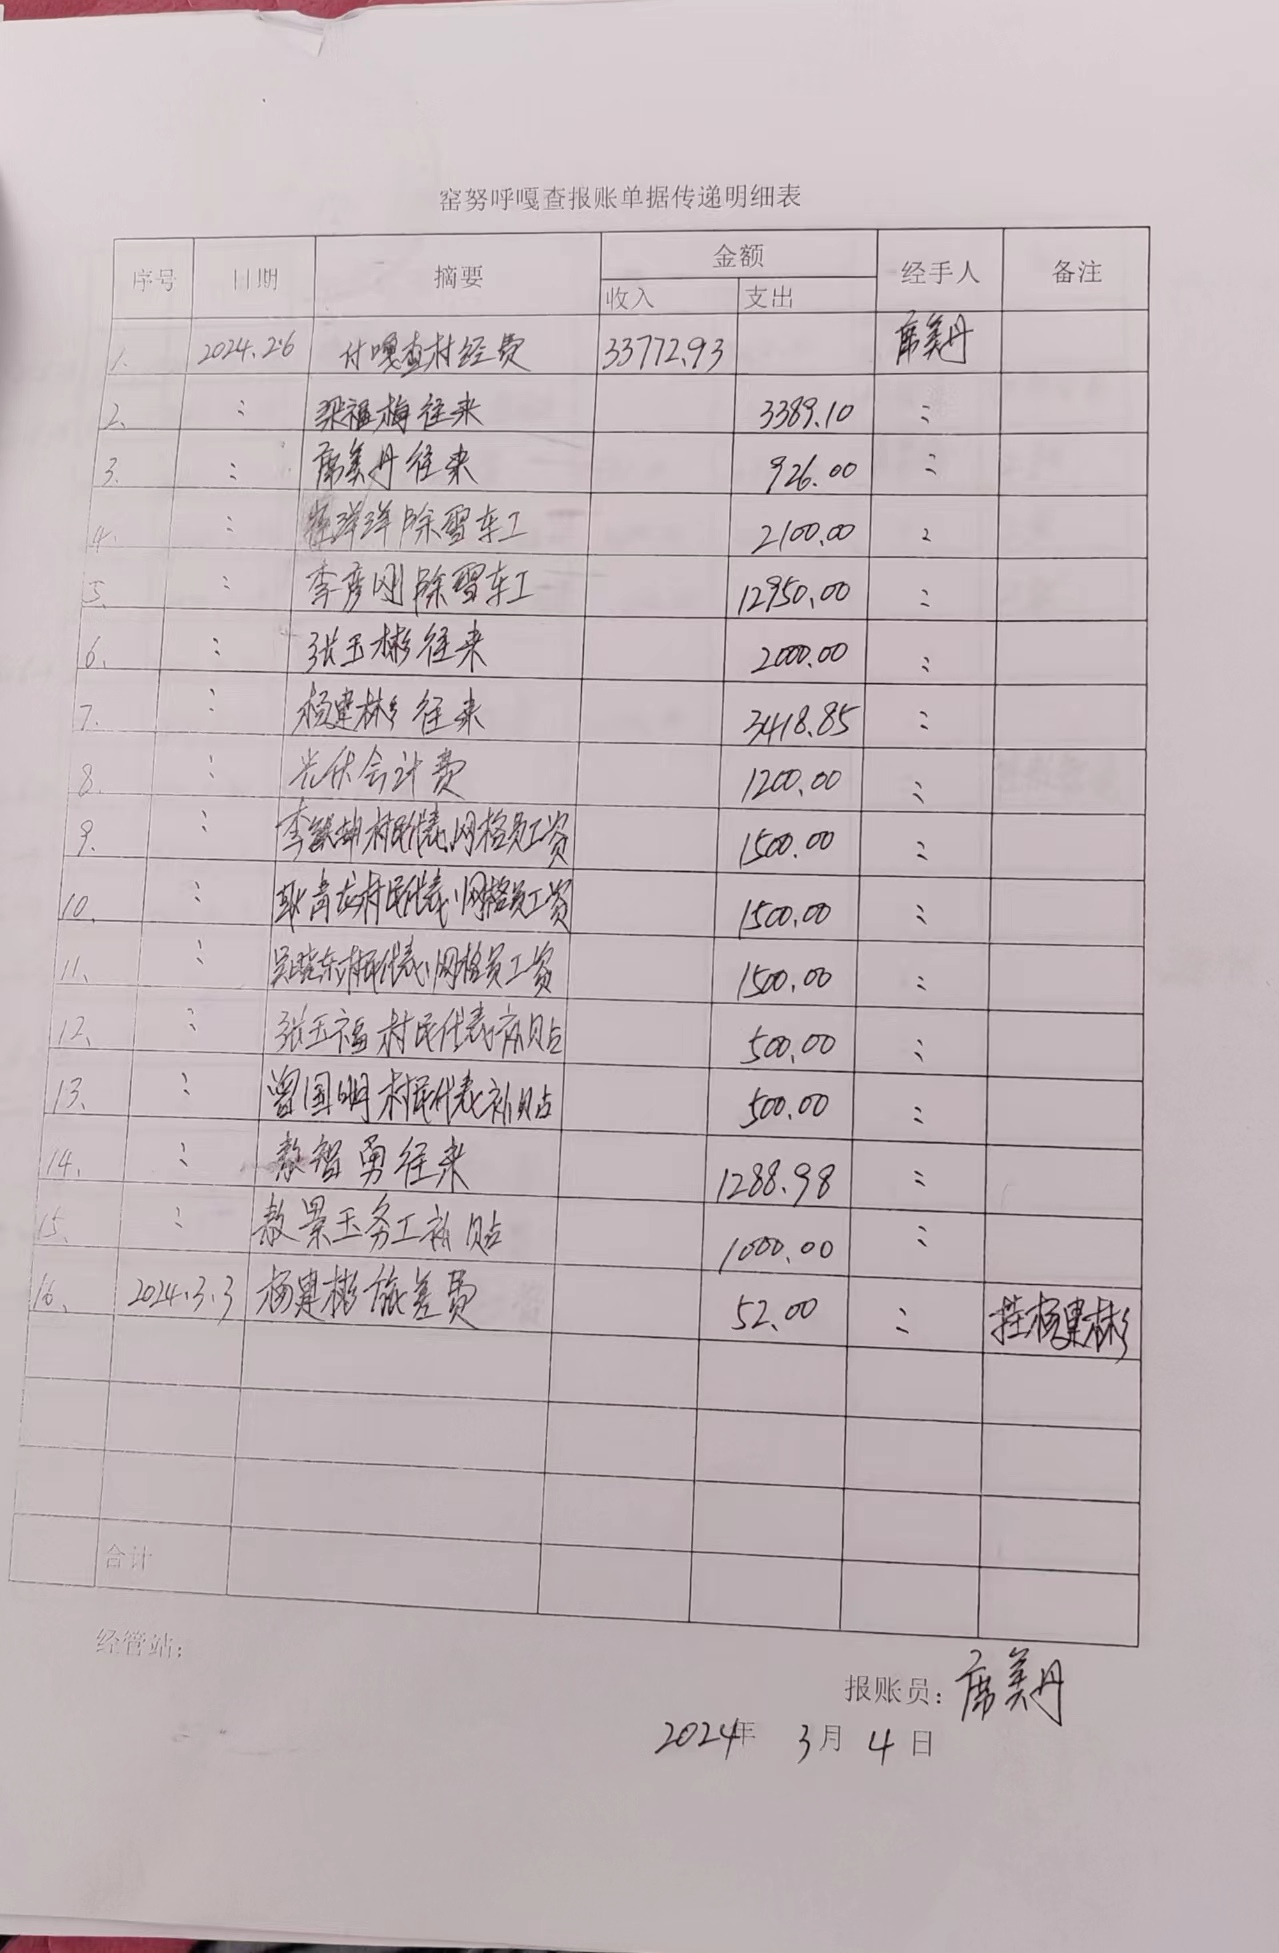 窑努呼嘎查报账单据传递明细表
序号 日期 摘要 金额 经手人 备注
收入 支出
1. 2024.2.6 付嘎查村经费 33772.93 席美丹
2. 〃 梁福梅往来 3389.10 〃
3. 〃 席美丹往来 926.00 〃
4. 〃 洋洋除雪车工 2100.00 〃
5. 〃 李彦刚除雪车工 12950.00 〃
6. 〃 张玉彬往来 2000.00 〃
7. 〃 杨建彬往来 3418.85 〃
8. 〃 光伏会计费 1200.00 〃
9. 〃 李 村民代表、网格员工资 1500.00 〃
10. 〃 耿青龙村民代表、网格员工资 1500.00 〃
11. 〃 吴晓东村民代表、网格员工资 1500.00 〃
12. 〃 张玉福村民代表补贴 500.00 〃
13. 〃 曾国明村民代表补贴 500.00 〃
14. 〃 敖智勇往来 1288.98 〃
15. 〃 敖景玉务工补贴 1000.00 〃
16. 2024.3.3 杨建彬旅差费 52.00 〃 挂杨建彬
合计
经管站：
报账员：席美丹
2024年 3月 4日